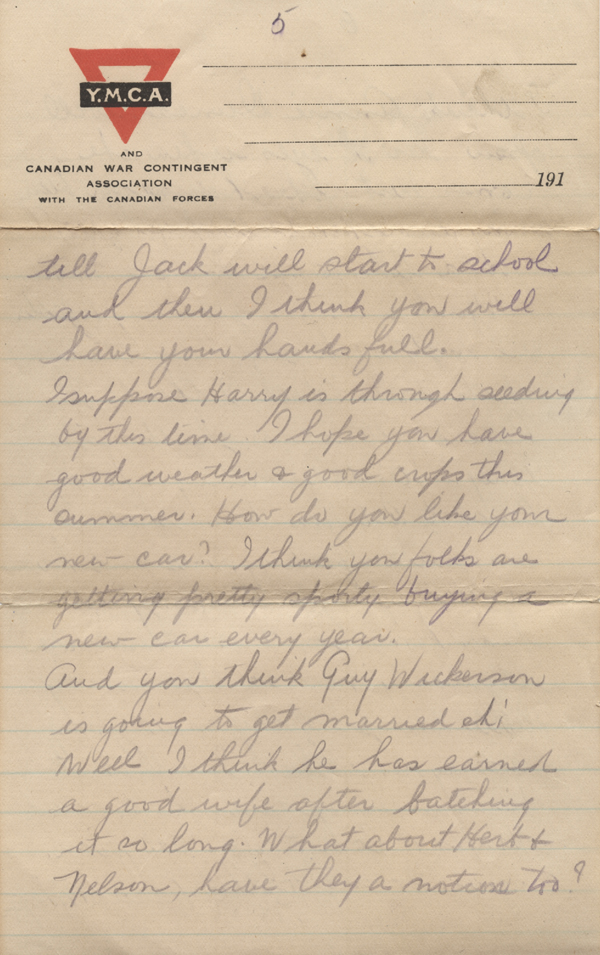 5
Y.M.C.A.
AND
CANADIAN WAR CONTINGENT
ASSOCIATION
WITH THE CANADIAN FORCES
191
till Jack will start to school
and then I think you will
have your hands full.
I suppose Harry is through seeding
by this time. I hope you have
good weather & good crops this
summer. How do you like your
new car? I think you folks are
getting pretty sporty buying a
new car every year.
And you think Guy Wickerson
is going to get married eh!
Well I think he has earned
a good wife after batching
it so long. What about Herb &
Nelson, have they a notion too?